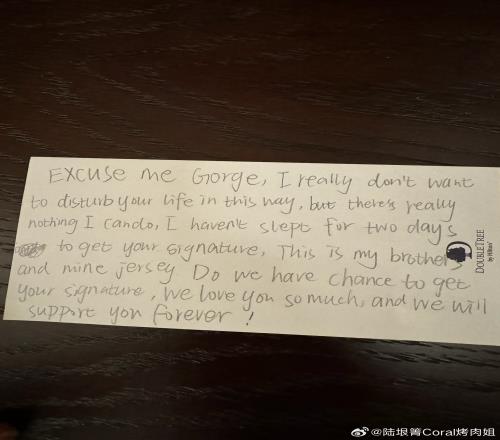 Excuse me Gorge, I really don't want
to disturb your life in this way, but there's really
nothing I can do, I haven't slept for two days
to get your signature, This is my brothers
and mine jersey Do we have chance to get
your signature, we love you so much, and we will
support you forever!
DOUBLETREE
by Hilton
@陆垠箐Coral烤肉姐